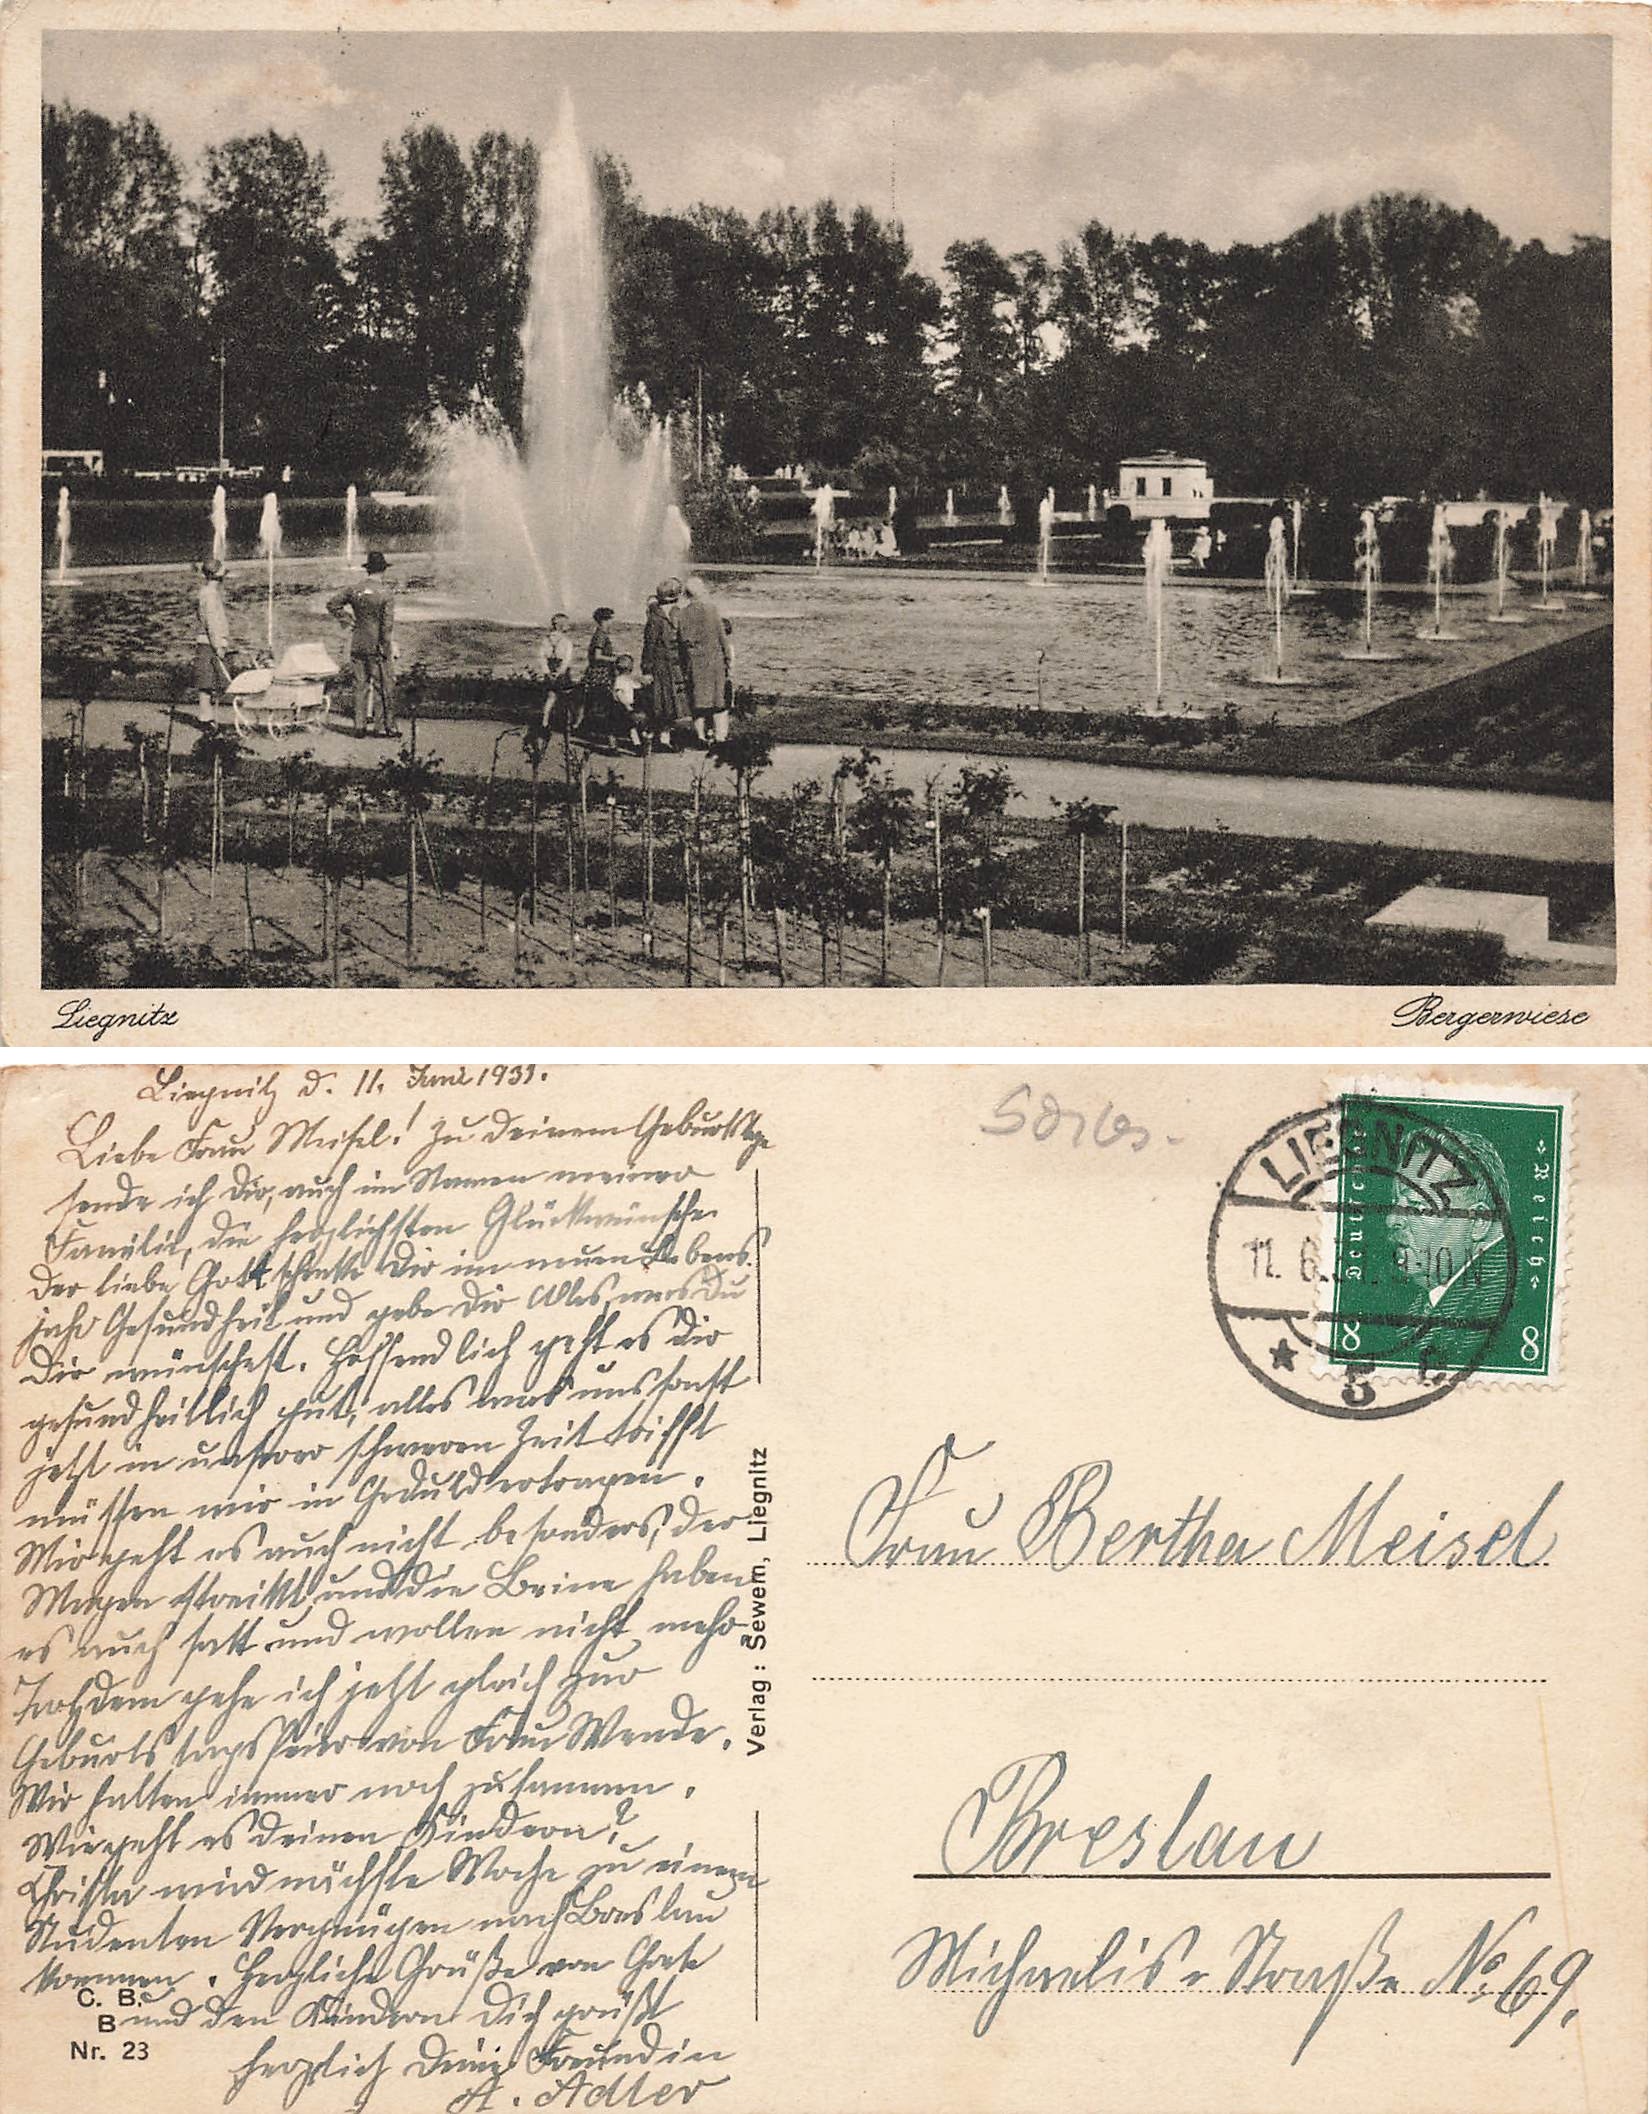 Liegnitz
Bergerwiese
Liegnitz d. 11. Juni 1931.
Liebe Frau Meisel! Zu deinem Geburtstage
sende ich dir, auch im Namen meiner
Familie, die herzlichsten Glückwünsche.
Der liebe Gott schenke Dir im neuen Lebens-
jahr Gesundheit und gebe dir Alles, was Du
Dir wünschest. Hoffendlich geht es Dir
gesundheitlich gut, alles was uns sonst
jetzt in unserer schweren Zeit trifft
müssen wir in Geduld ertragen.
Mir geht es auch nicht besonders, der
Magen streikt und die Beine haben
es auch satt und wollen nicht mehr
Trotzdem gehe ich jetzt gleich zur
Geburtstagsfeier von Frau Wende.
Wir halten immer noch zusammen.
Wie geht es deinen Kindern?
Christa wird nächste Woche zu einem
Studenten Vergnügen nach Breslau
kommen. Herzliche Grüße von Grete
und den Kindern Dich grüßt
herzlich Deine Freundin
A. Adler
C. B.
B
Nr. 23
Verlag: Sewem, Liegnitz
Deutsches Reich
8 8
LIEGNITZ
11. 6. 9-10
* 5
Frau Bertha Meisel
Breslau
Michaelis-Straße No 69.